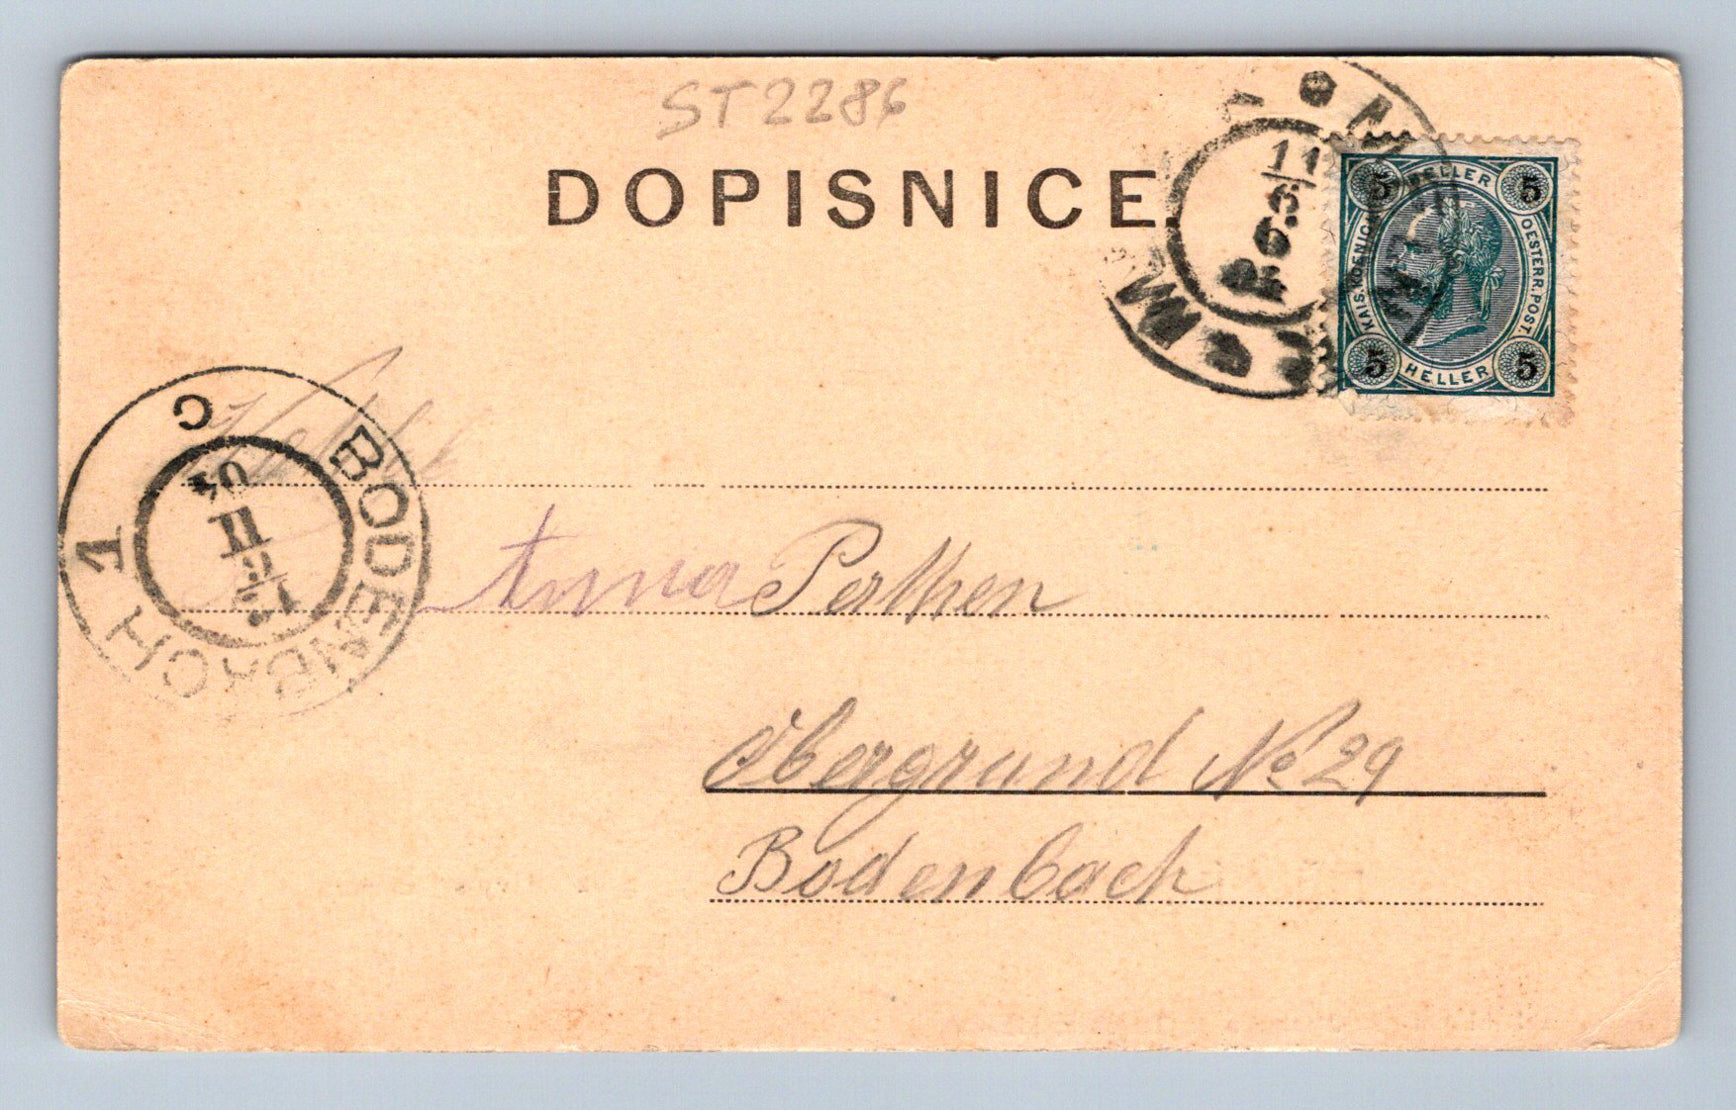 ST2286
DOPISNICE.
5 HELLER 5
KAIS. KOENIGL. OESTERR. POST.
5 HELLER 5
BODENBACH 1
C
Anna Perthen
Obergrund No 29
Bodenbach